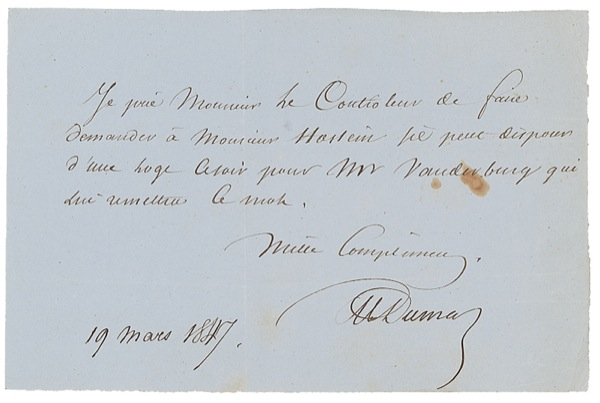 Je prie Monsieur Le Controleur de faire
demander à Monsieur Hostein s'il peut disposer
d'une loge Cesoir pour Mr Vanderburg qui
lui remettra Ce mot.
Mille Complimens.
Al Dumas
19 mars 1847.